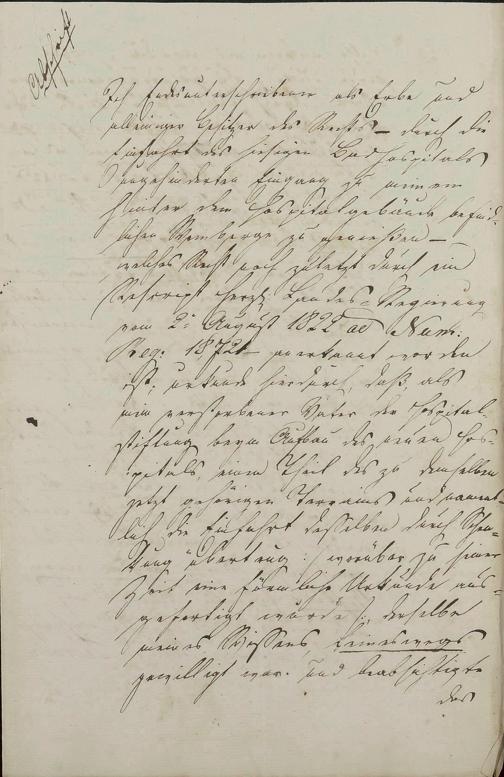 Abschrift
Ich Endesunterschriebener als Erbe und
alleiniger Besitzer des Rechts – durch die
Einfahrt des hiesigen Badhospitals
ungehinderten Eingang zu meinem
hinter dem Hospitalgebäude befind-
lichen Weinberge zu genießen –
welches Recht noch zuletzt durch ein
Rescript Herzl. Landes-Regierung
vom 2. August 1822 ad Num.
Reg. 18721 anerkannt worden
ist, urkunde hierdurch, daß, als
mein verstorbener Vater der Hospital-
stiftung beym Aufbau des neuen Hos-
pitals, einen Theil des zu demselben
jetzt gehörigen Terrains und nament-
lich die Einfahrt desselben durch Schen-
kung übertrug /: worüber zu seiner
Zeit eine förmliche Urkunde aus-
gefertigt wurde :/ derselbe
meines Wissens, keineswegs
gewilligt war und beabsichtigte
das